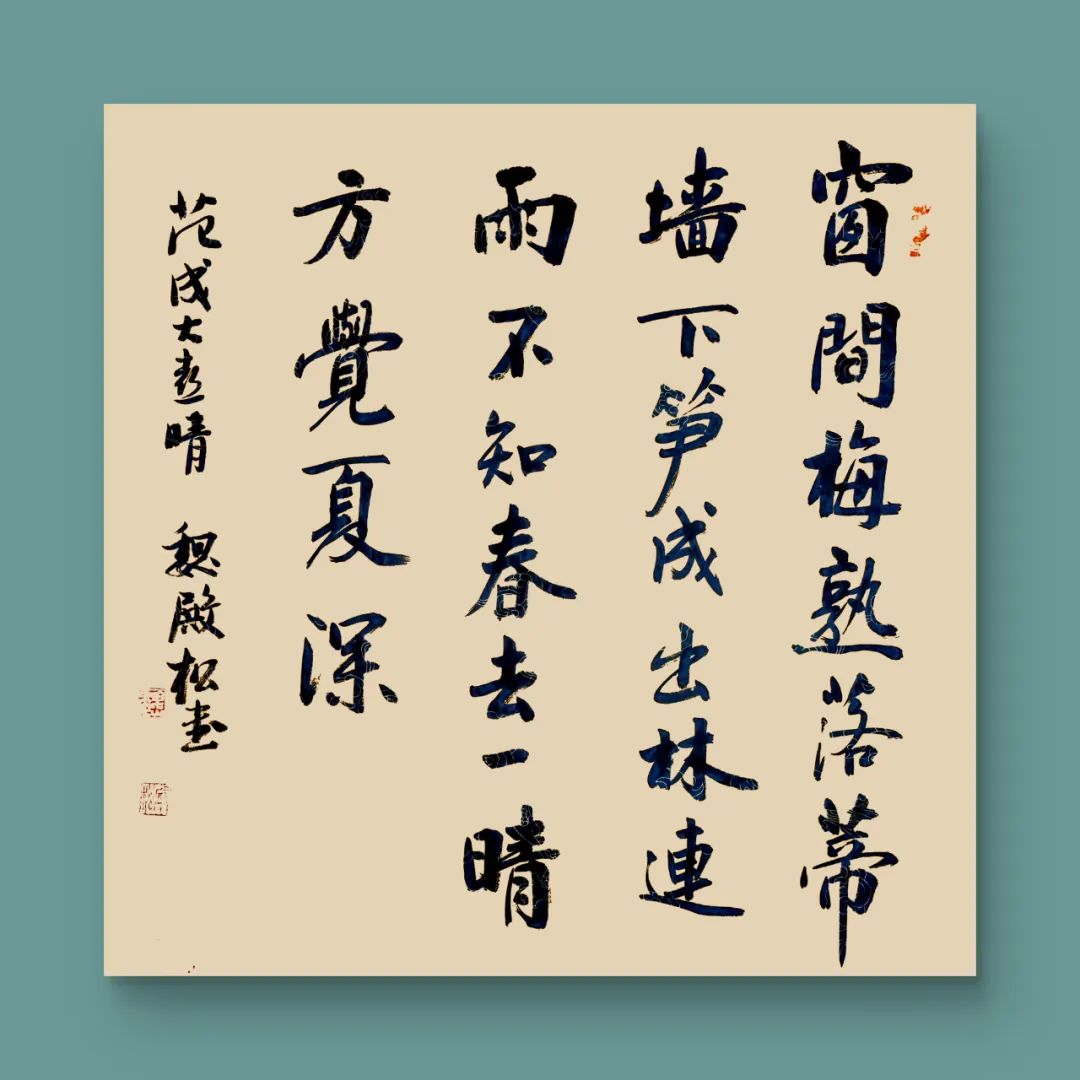 窗間梅熟落蒂
墙下笋成出林連
雨不知春去一晴
方覺夏深
范成大喜晴 魏殿松书